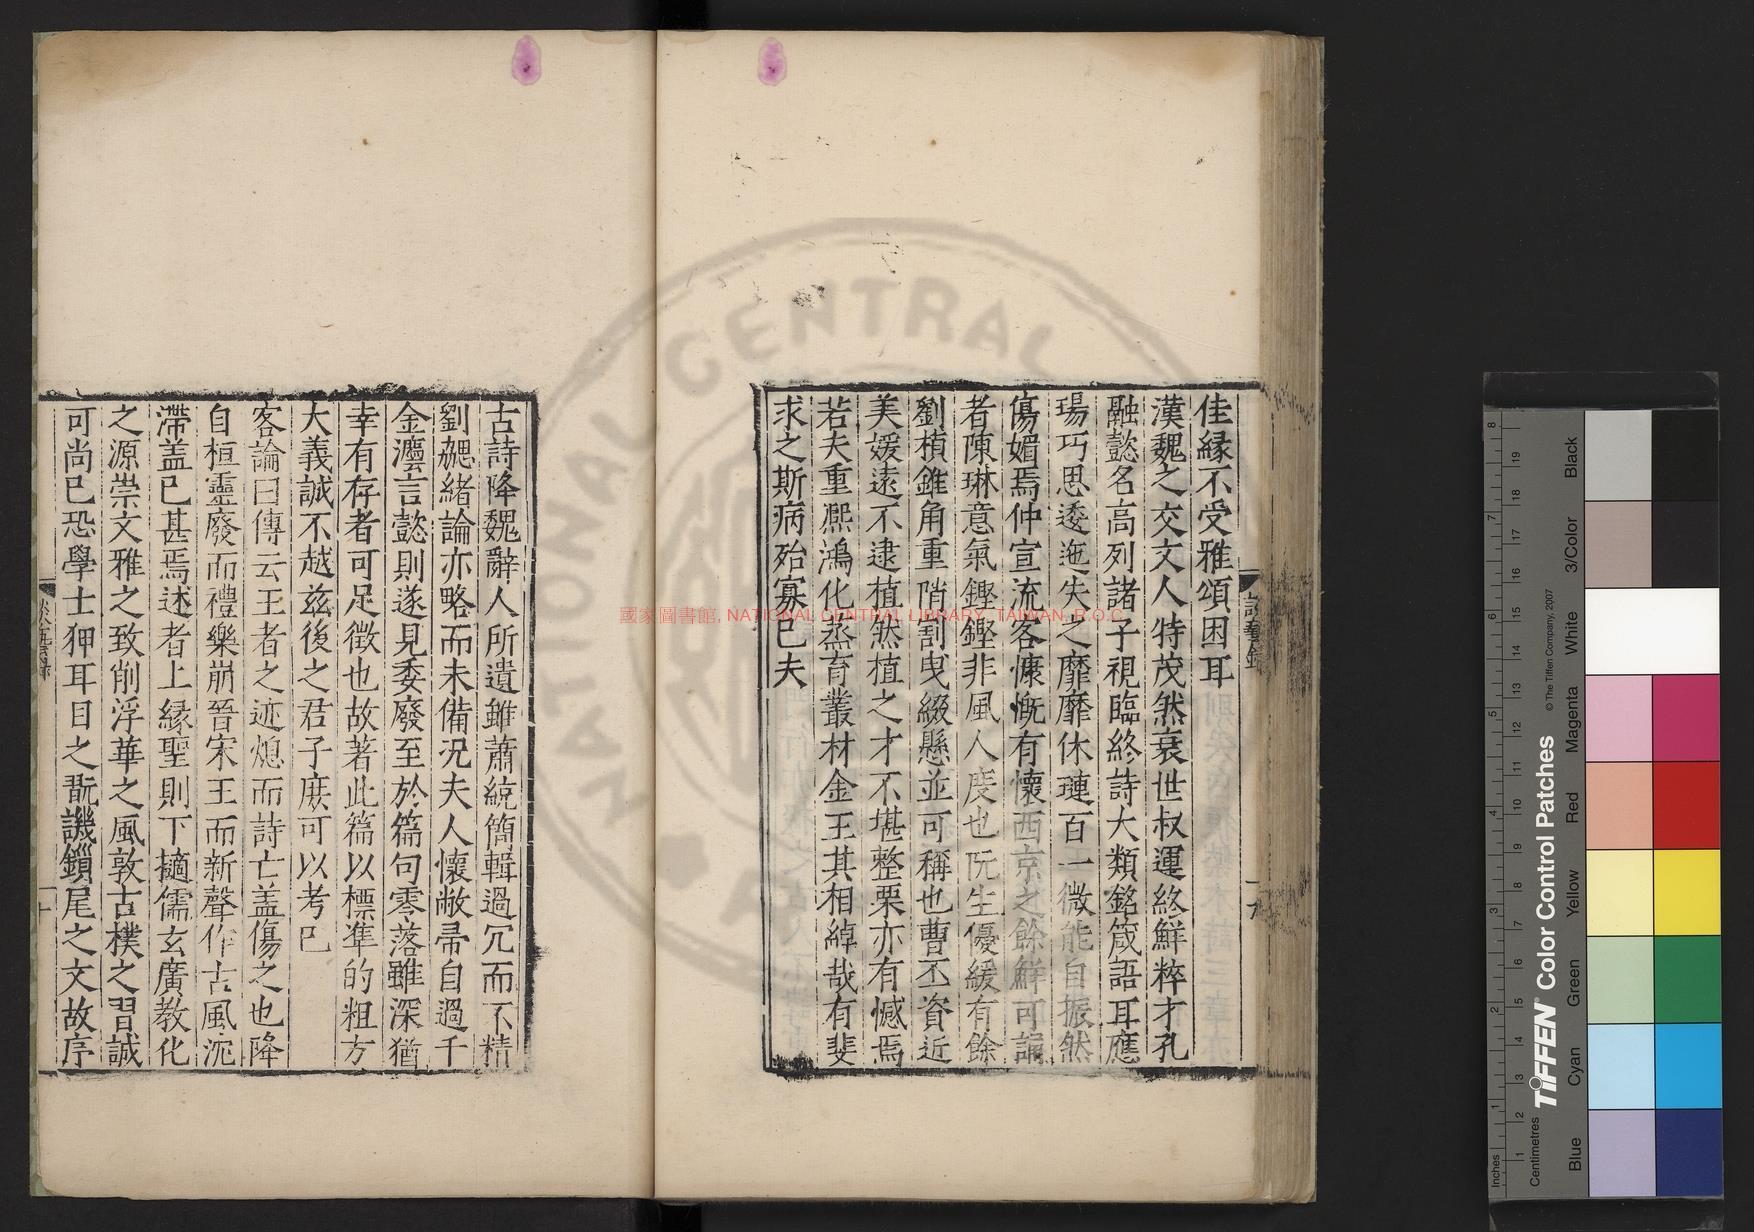 佳縁不受雅頌困耳
漢魏之交文人特茂然衰世叔運終鮮粹才孔
融懿名高列諸子視臨終詩大類銘箴語耳應
瑒巧思逶迤失之靡靡休璉百一微能自振然
傷媚焉仲宣流客慷慨有懷西京之餘鮮可誦
者陳琳意氣鏗鏗非風人度也阮生優緩有餘
劉楨錐角重陗割曳綴懸並可稱也曹丕資近
美媛遠不逮植然植之才不堪整栗亦有憾焉
若夫重熈鴻化蒸育叢材金玉其相綽哉有斐
求之斯病殆寡已夫
談藝錄
十九
古詩降魏辭人所遺雖蕭統簡輯過冗而不精
劉勰緒論亦略而未備况夫人懷敝帚自過千
金灋言懿則遂見委廢至於篇句零落雖深猶
幸有存者可足徴也故著此篇以標準的粗方
大義誠不越兹後之君子庻可以考已
客論曰傳云王者之迹熄而詩亡盖傷之也降
自桓靈廢而禮樂崩晉宋王而新聲作古風沉
滯盖已甚焉述者上縁聖則下擿儒玄廣教化
之源崇文雅之致削浮華之風敦古樸之習誠
可尚已恐學士狎耳目之翫譏鎻尾之文故序
國家圖書館, NATIONAL CENTRAL LIBRARY, TAIWAN, R.O.C
NATIONAL CENTRAL
Inches
Centimetres
TIFFEN® Color Control Patches
© The Tiffen Company, 2007
Blue
Cyan
Green
Yellow
Red
Magenta
White
3/Color
Black